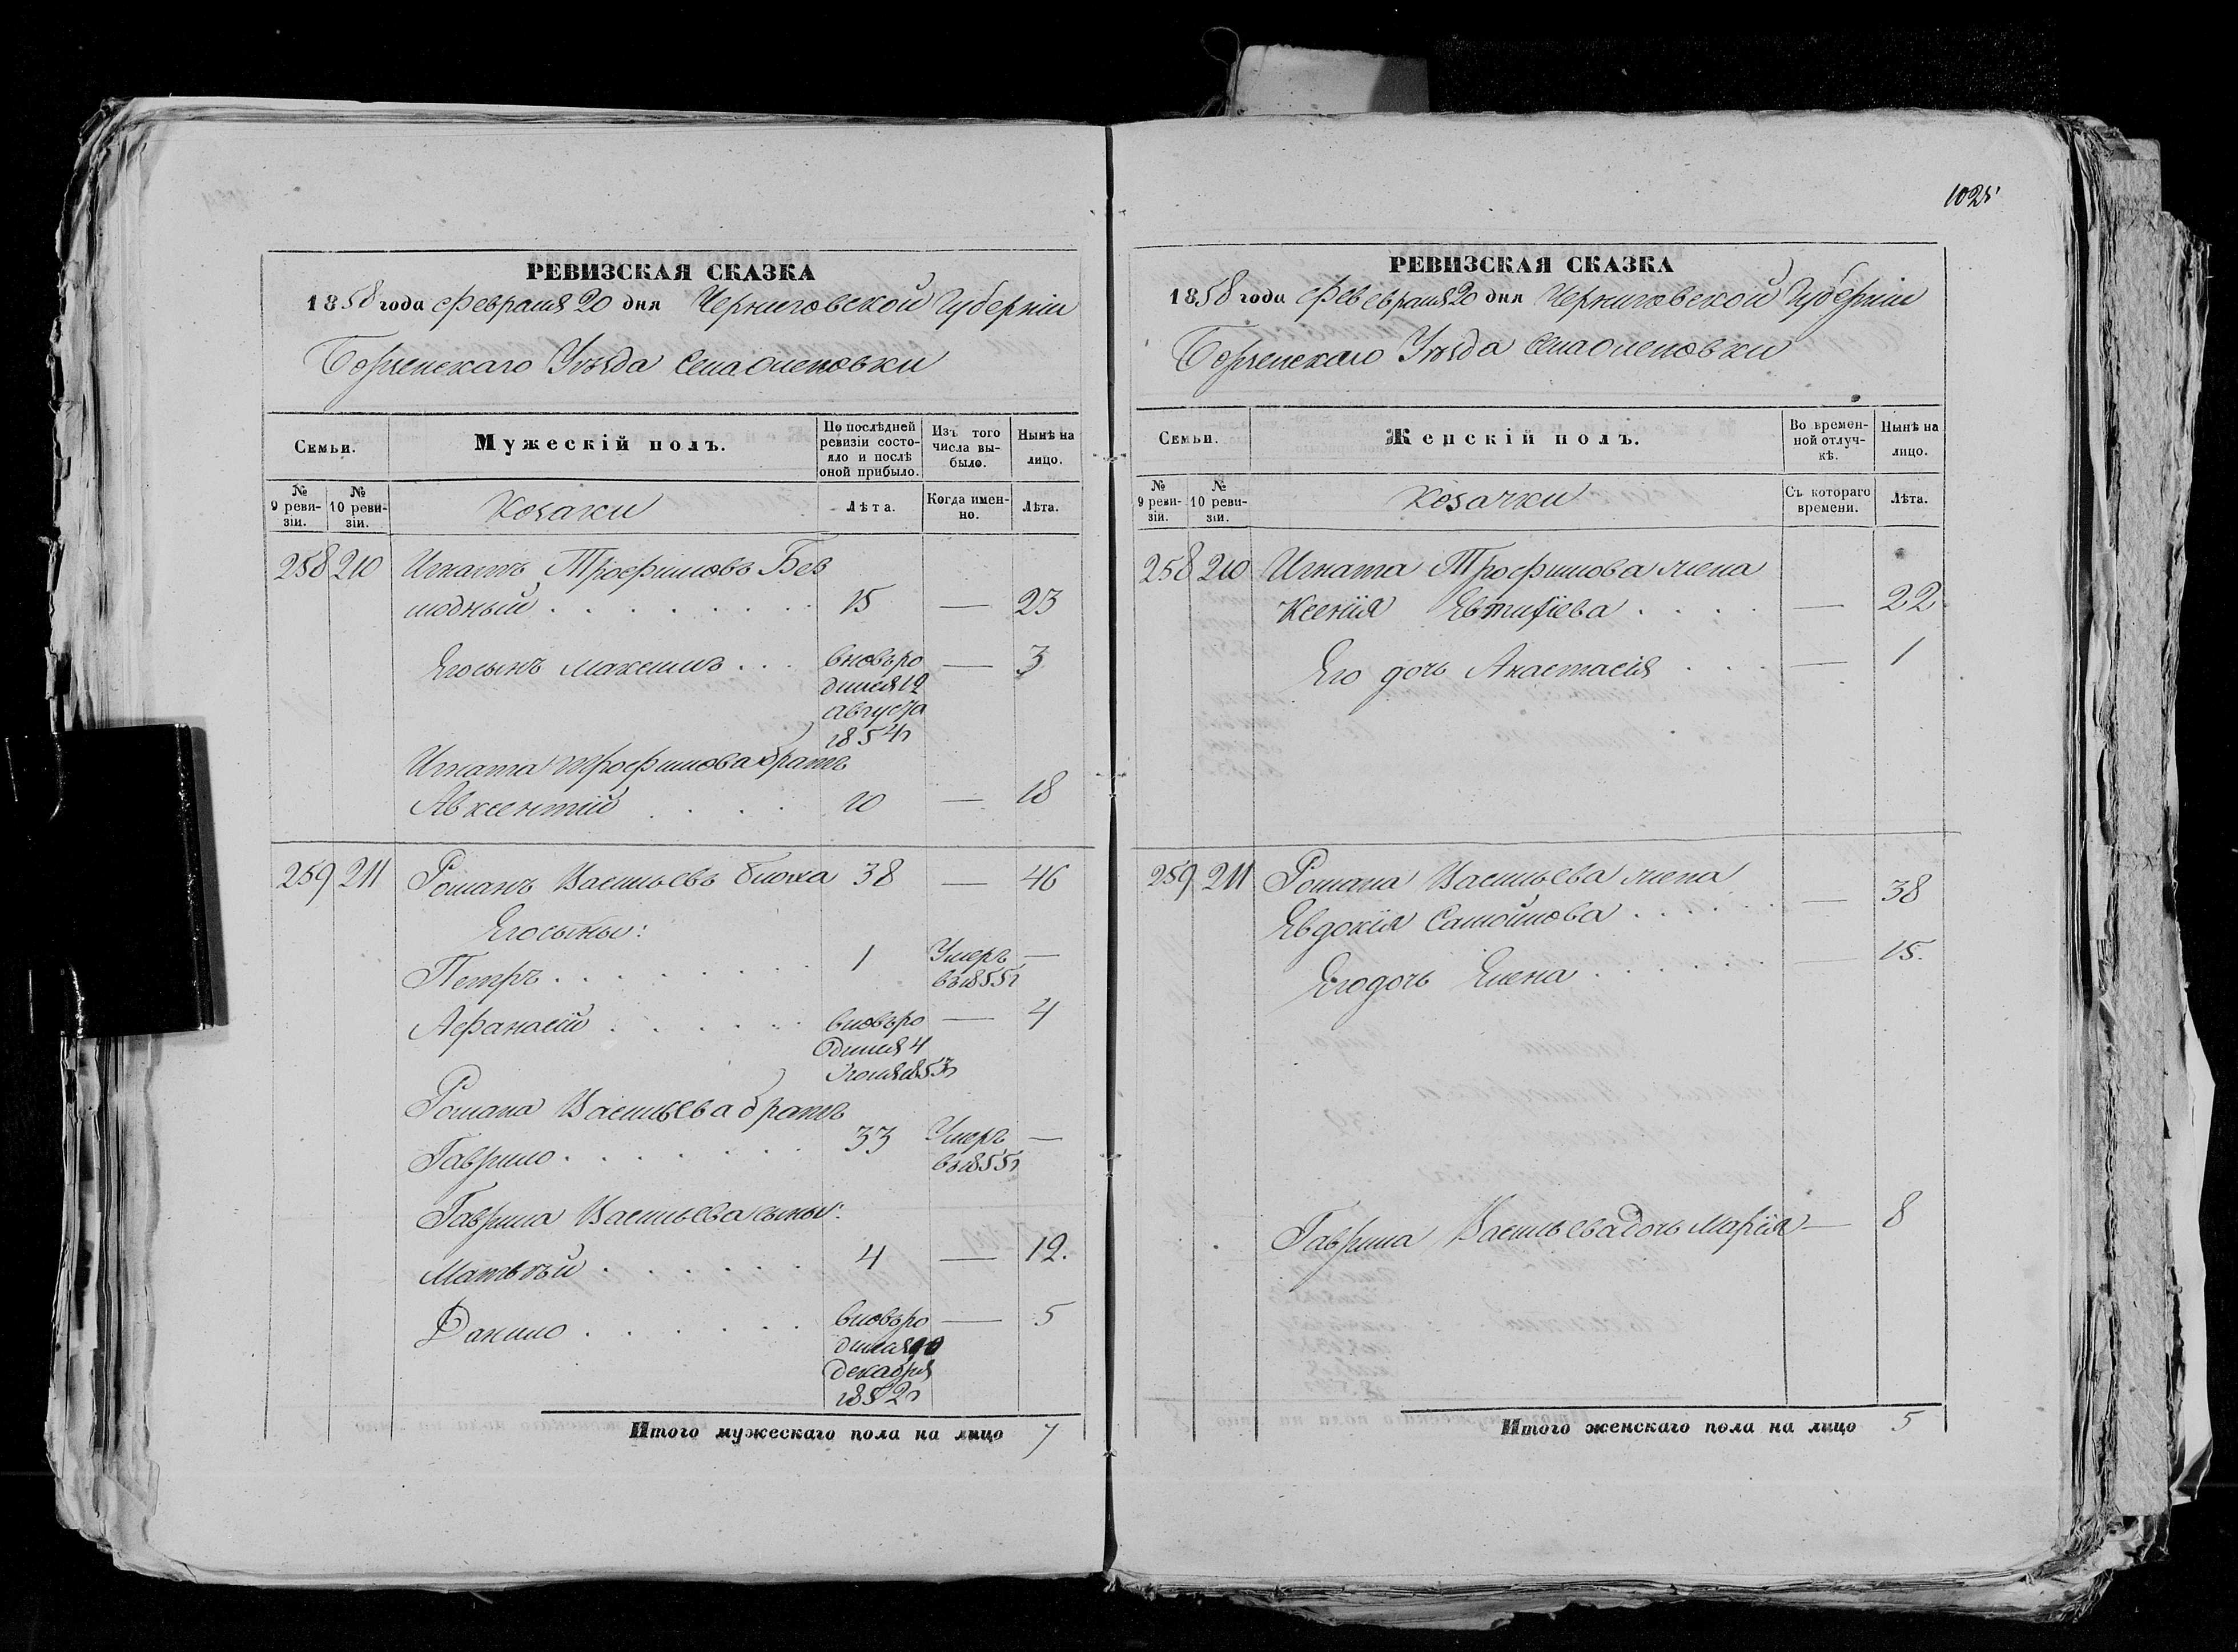 1025
РЕВИЗСКАЯ СКАЗКА
1858 года Февраля 20 дня Черниговской Губерніи
Борзенскаго Уѣзда Села Оленовки
Семьи.
Мужескій полъ.
По послѣдней ревизіи состояло и послѣ оной прибыло.
Изъ того числа выбыло.
Нынѣ на лицо.
№ 9 ревизіи.
№ 10 ревизіи.
Козаки
Лѣта.
Когда именно.
Лѣта.
258 210 Игнатъ Трофимовъ Без
людный . . . 15 — 23
Его сынъ Максимъ . . . вновь ро — 3
дился 12
августа
1854 г
Игната Трофимова братъ
Авксентій . . . 10 — 18
259 211 Романъ Васильевъ Блоха 38 — 46
Его сыны:
Петръ . . . 1 Умеръ —
въ 1855 г
Афанасій . . . вновь ро — 4
дился 4
1853 г
Романа Васильева братъ
Гаврило . . . 33 Умеръ —
въ 1855 г
Гаврила Васильева сыны:
Матвѣй . . . 4 — 12.
Данило . . . вновь ро — 5
дился 10
декабря
1852 г
Итого мужескаго пола на лицо 7
РЕВИЗСКАЯ СКАЗКА
1858 года Февраля 20 дня Черниговской Губерніи
Борзенскаго Уѣзда Села Оленовки
Семьи.
Женскій полъ.
Во временной отлучкѣ.
Нынѣ на лицо.
№ 9 ревизіи.
№ 10 ревизіи.
Козачки
Съ котораго времени.
Лѣта.
258 210 Игната Трофимова жена
Ксенія Евтифіева . . . — 22
Его дочь Анастасія . . . — 1
259 211 Романа Васильева жена
Евдокія Самойлова . . . — 38
Его дочь Елена . . . — 15.
Гаврила Васильева дочь Марія — 8
Итого женскаго пола на лицо 5